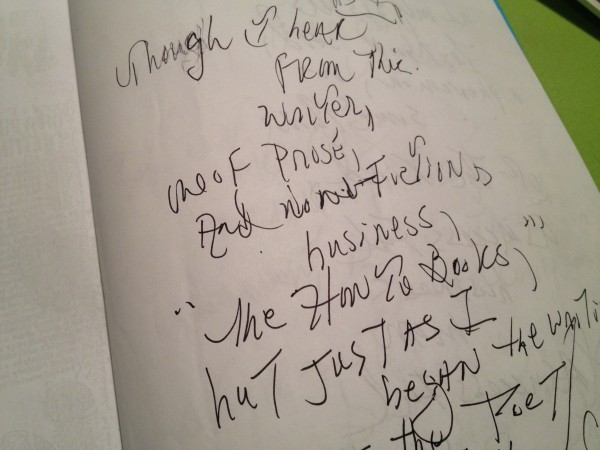 Though I hear
from this
writer,
one of prose,
And non-Fiction,
business,
"The How To Books,"
but JUST AS I
began the
the Poet